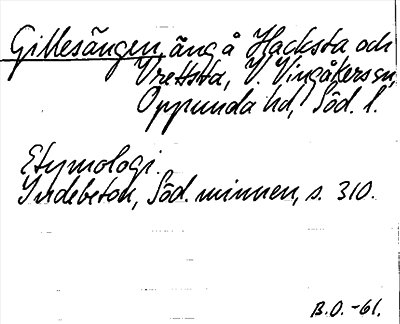 Gillesängen, äng å Hacksta och
Vrettsta, V. Vingåkers sn,
Oppunda hd, Söd. l.
Etymologi.
Indebetou, Söd. minnen, s. 310.
B.O.-61.